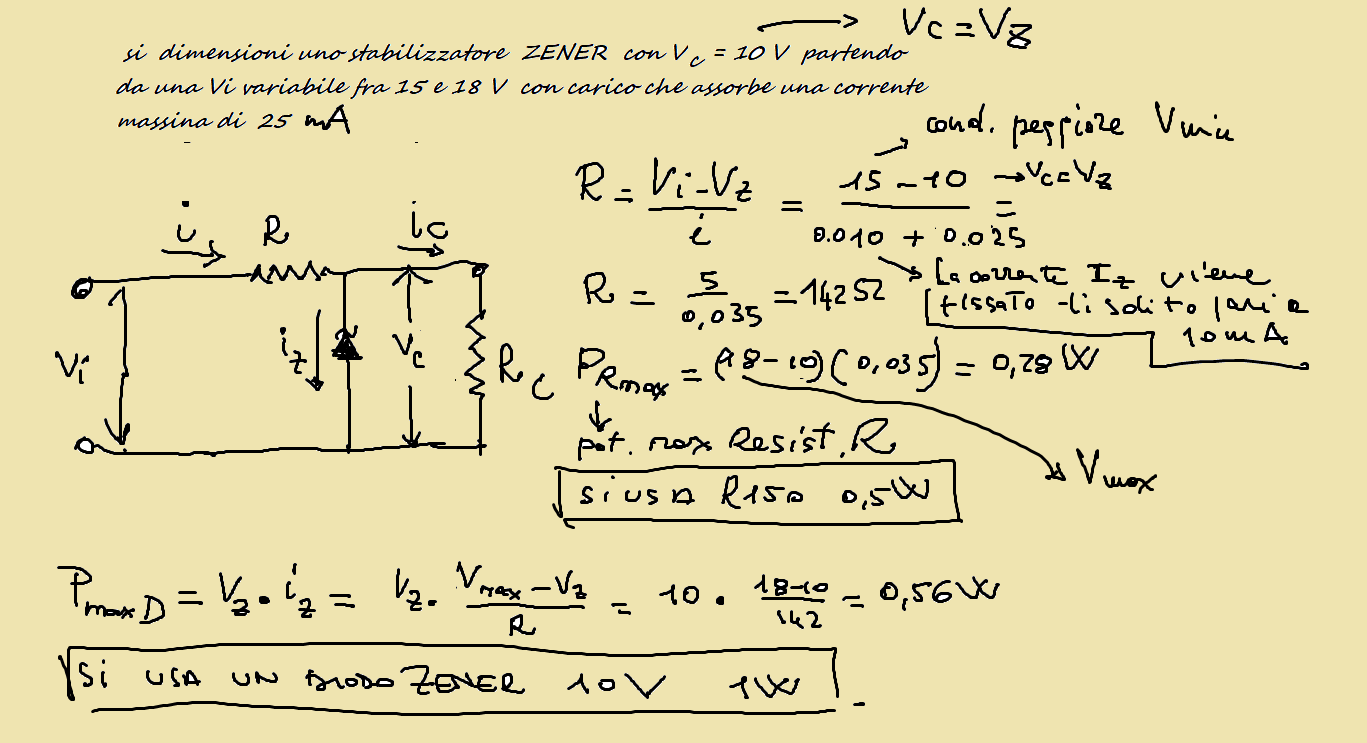 Vc = Vz
si dimensioni uno stabilizzatore ZENER con Vc = 10 V partendo
da una Vi variabile fra 15 e 18 V con carico che assorbe una corrente
massina di 25 mA
cond. peggiore Vmin
R = Vi-Vz / i = 15-10 / 0.010 + 0.025 =
→ Vc = Vz
R = 5 / 0,035 = 142Ω
La corrente Iz viene
fissato di solito pari a
10 mA
i R ic
Vi iz Vc Rc
PRmax = (18-10)(0,035) = 0,28 W
pot. max Resist. R
Vmax
si usa R150 0,5W
PmaxD = Vz · iz = Vz · Vmax-Vz / R = 10 · 18-10 / 142 = 0,56W
Si USA UN DIODO ZENER 10V 1W